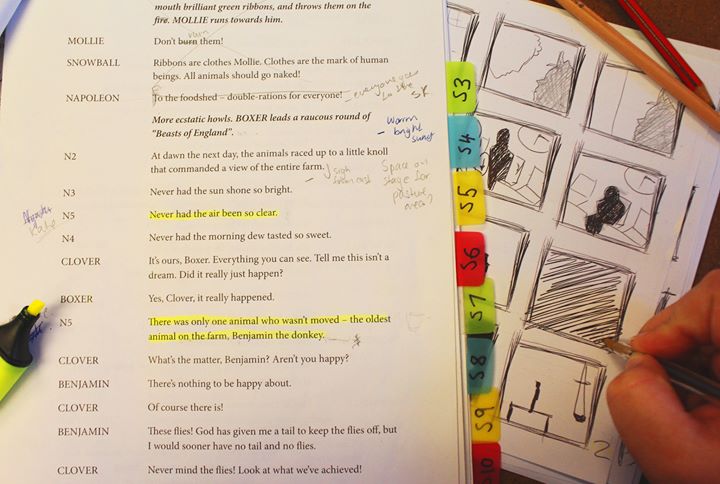 mouth brilliant green ribbons, and throws them on the
fire. MOLLIE runs towards him.
MOLLIE Don't burn them!
SNOWBALL Ribbons are clothes Mollie. Clothes are the mark of human
beings. All animals should go naked!
NAPOLEON To the foodshed – double-rations for everyone!
everyone
More ecstatic howls. BOXER leads a raucous round of
"Beasts of England".
- Warm
bright
N2 At dawn the next day, the animals raced up to a little knoll
that commanded a view of the entire farm.
Space on
stage for
pasture
area?
N3 Never had the sun shone so bright.
N5 Never had the air been so clear.
N4 Never had the morning dew tasted so sweet.
CLOVER It's ours, Boxer. Everything you can see. Tell me this isn't a
dream. Did it really just happen?
BOXER Yes, Clover, it really happened.
N5 There was only one animal who wasn't moved – the oldest
animal on the farm, Benjamin the donkey.
CLOVER What's the matter, Benjamin? Aren't you happy?
BENJAMIN There's nothing to be happy about.
CLOVER Of course there is!
BENJAMIN These flies! God has given me a tail to keep the flies off, but
I would sooner have no tail and no flies.
CLOVER Never mind the flies! Look at what we've achieved!
S3
S4
S5
S6
S7
S8
S9
S10
2